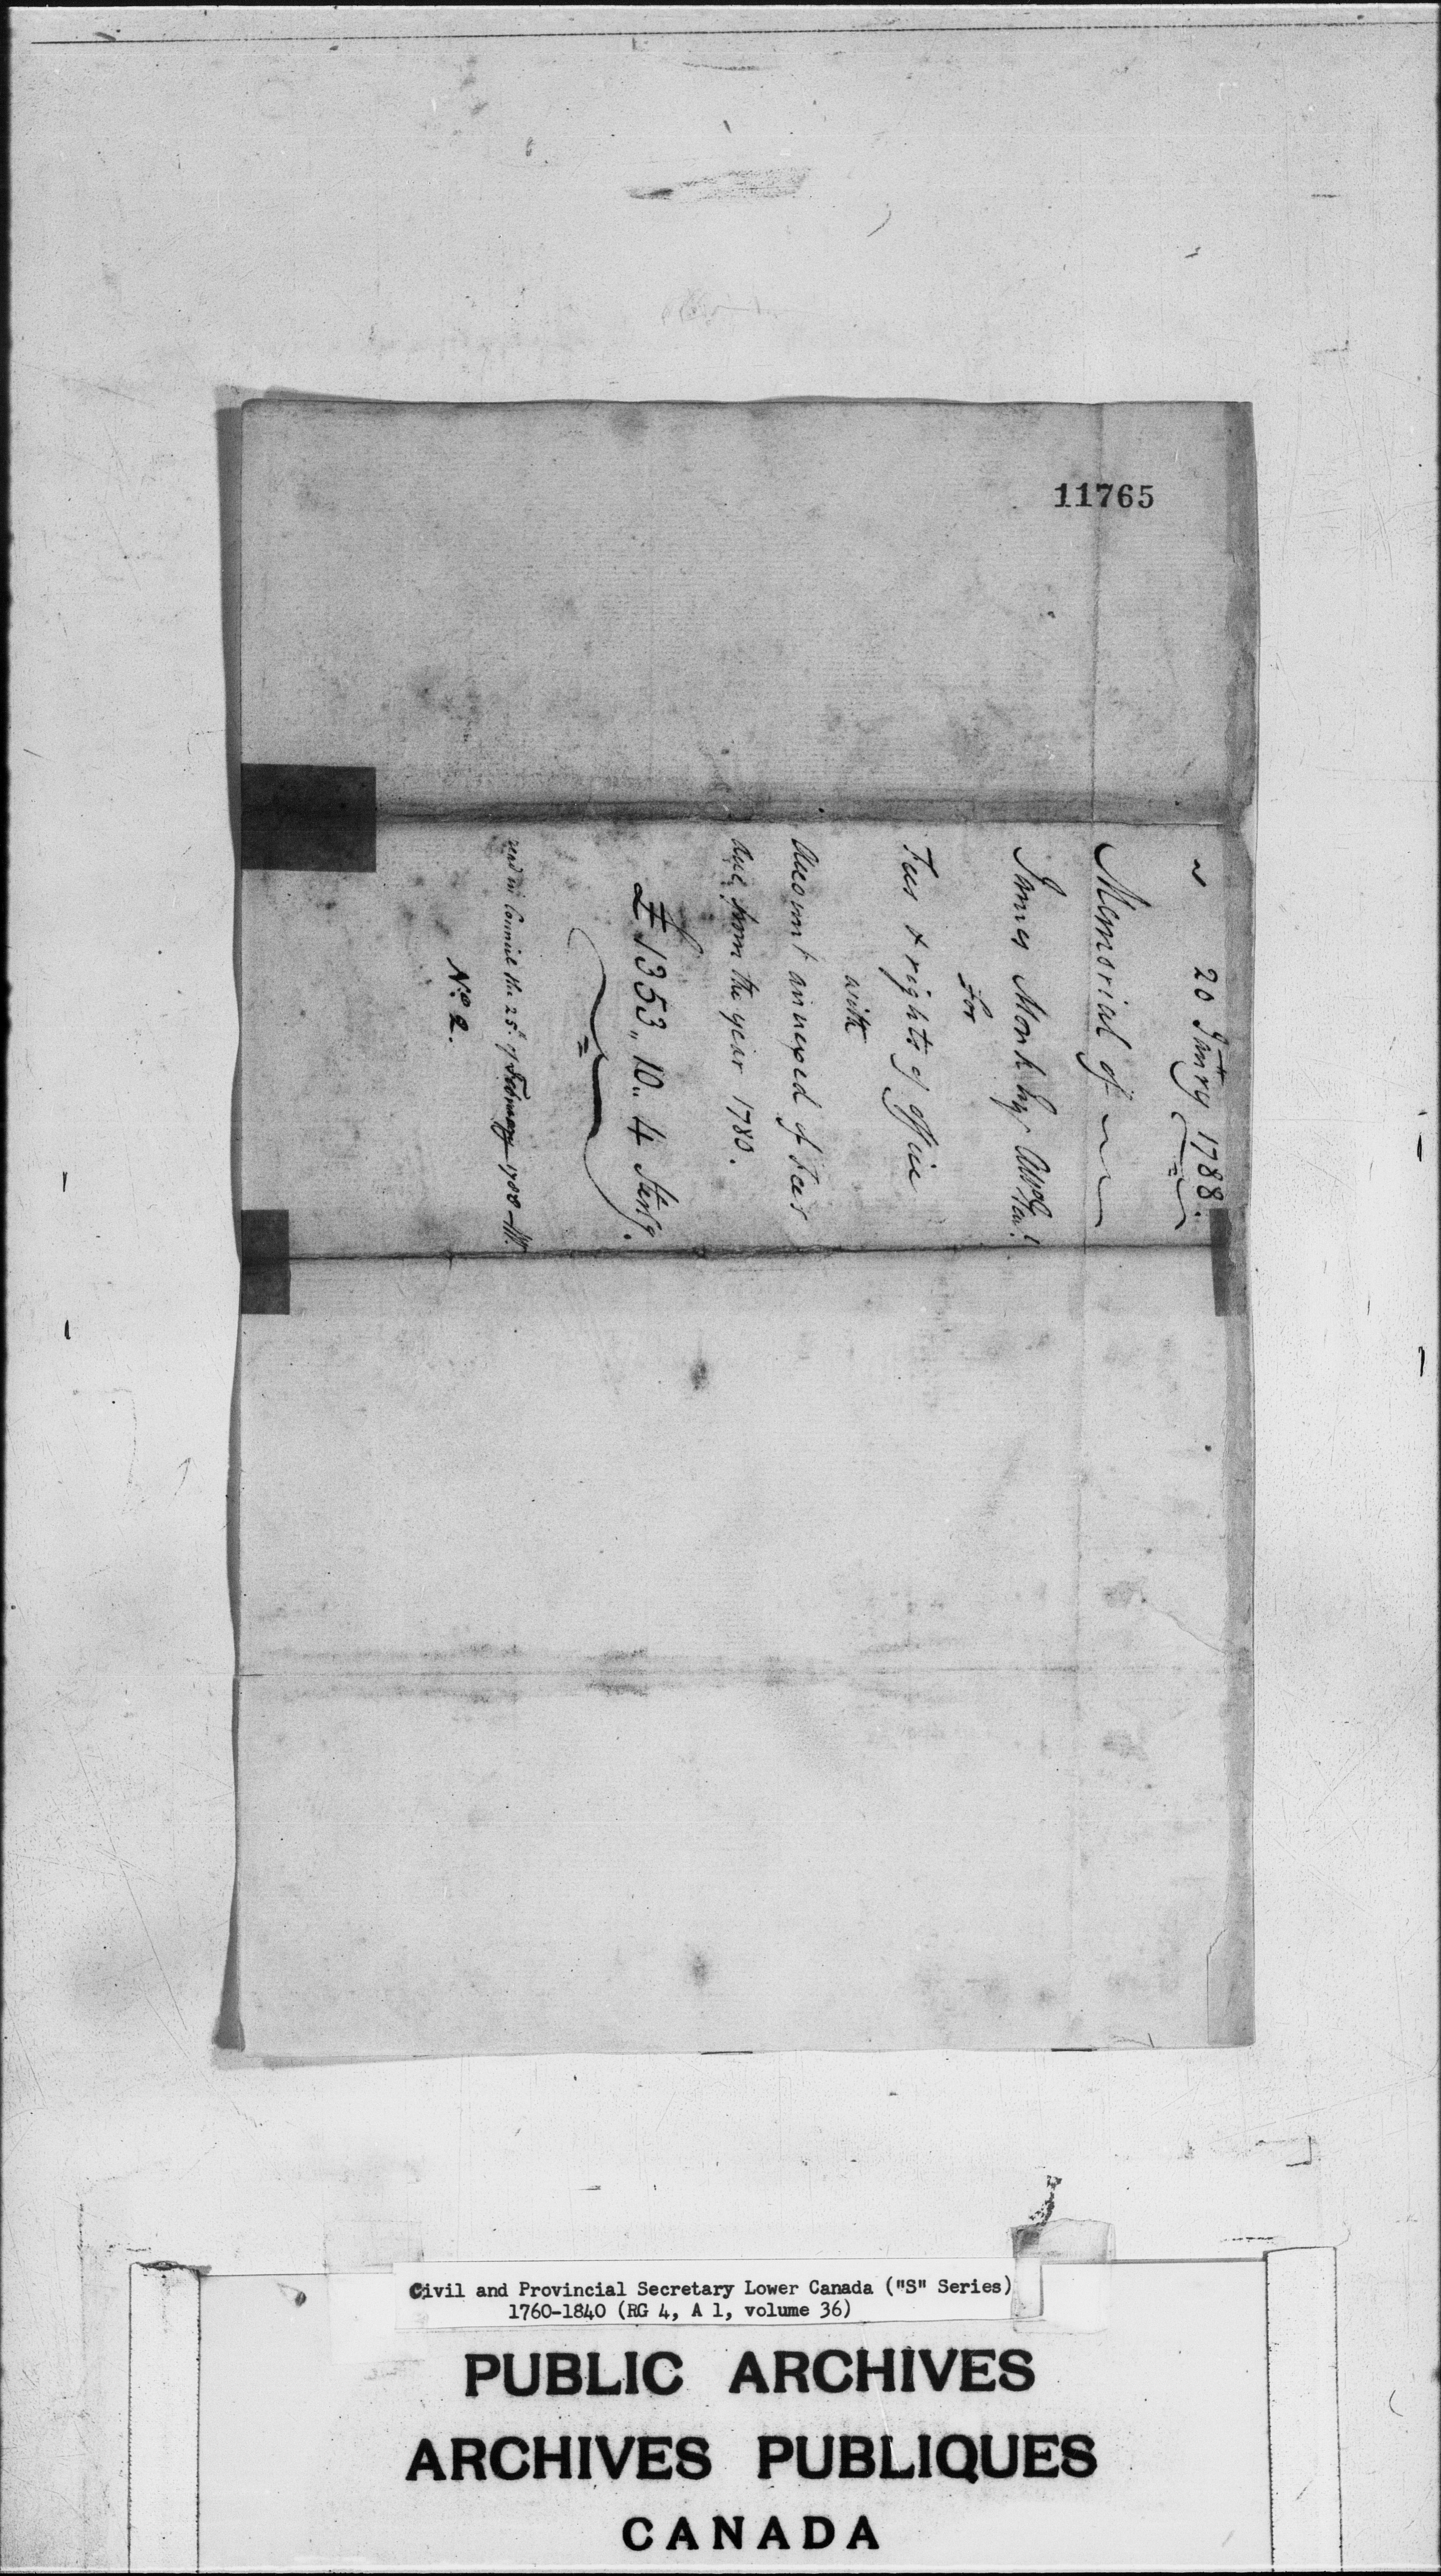 11765
20 Janry 1788.
Memorial of
James Monk Esqr Atty Genl.
For
Fees & rights of office
with
Account annexed of Fees
due from the year 1780.
£1353,, 10,, 4 Sterlg.
read in Council the 25th. of February 1788
No. 2.
Civil and Provincial Secretary Lower Canada ("S" Series)
1760-1840 (RG 4, A 1, volume 36)
PUBLIC ARCHIVES
ARCHIVES PUBLIQUES
CANADA